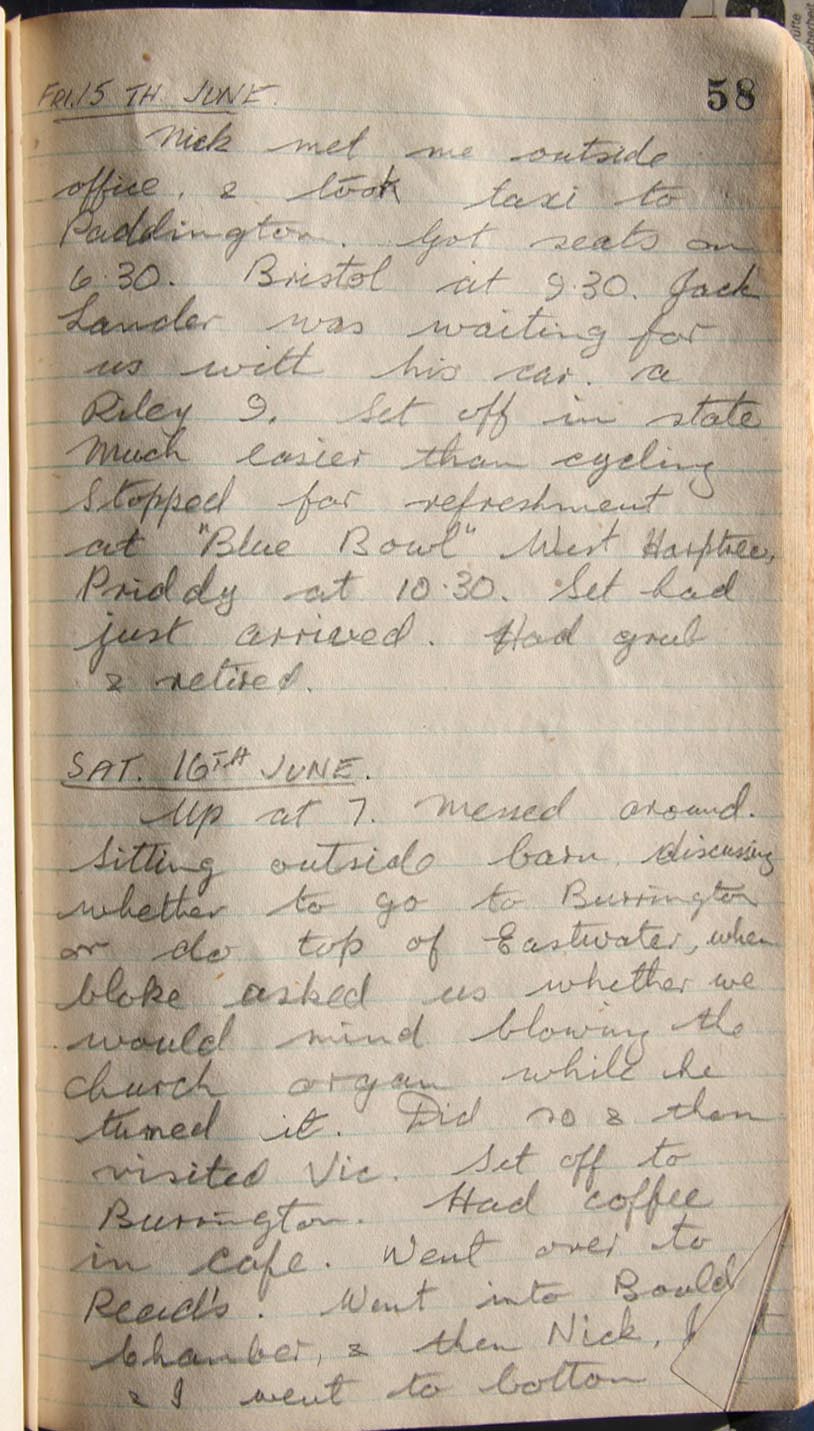 58
FRI. 15 TH JUNE.
Nick met me outside
office, & took taxi to
Paddington. Got seats on
6.30. Bristol at 9.30. Jack
Lander was waiting for
us with his car. a
Riley 9. Set off in state
Much easier than cycling
Stopped for refreshment
at "Blue Bowl" West Harptree,
Priddy at 10.30. Set had
just arrived. Had grub
& retired.
SAT. 16TH JUNE.
Up at 7. Messed around.
Sitting outside barn discussing
whether to go to Burrington
or do top of Eastwater, when
bloke asked us whether we
would mind blowing the
church organ while he
tuned it. Did so & then
visited Vic. Set off to
Burrington. Had coffee
in cafe. Went over to
Read's. Went into Bould
Chamber, & then Nick,
& I went to bottom